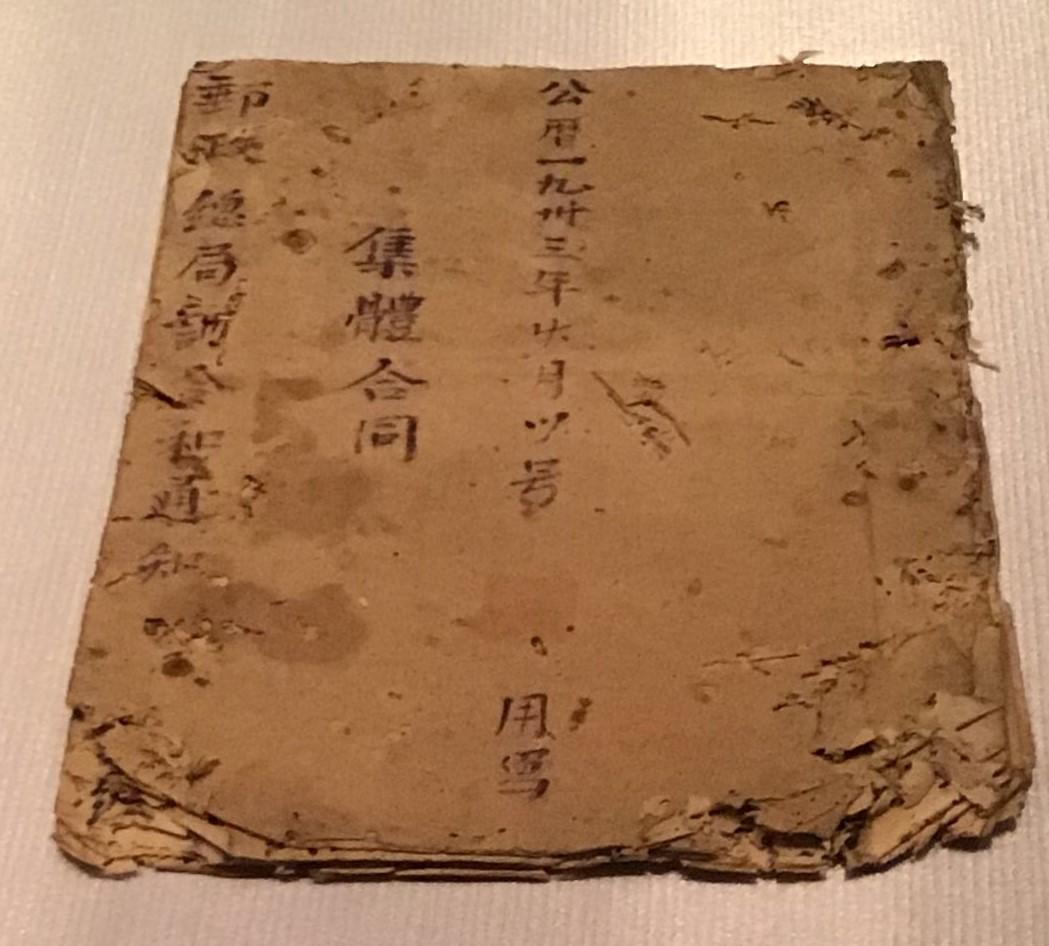 公曆一九卅三年六月号 用写
集體合同
郵政總局訓令和通知